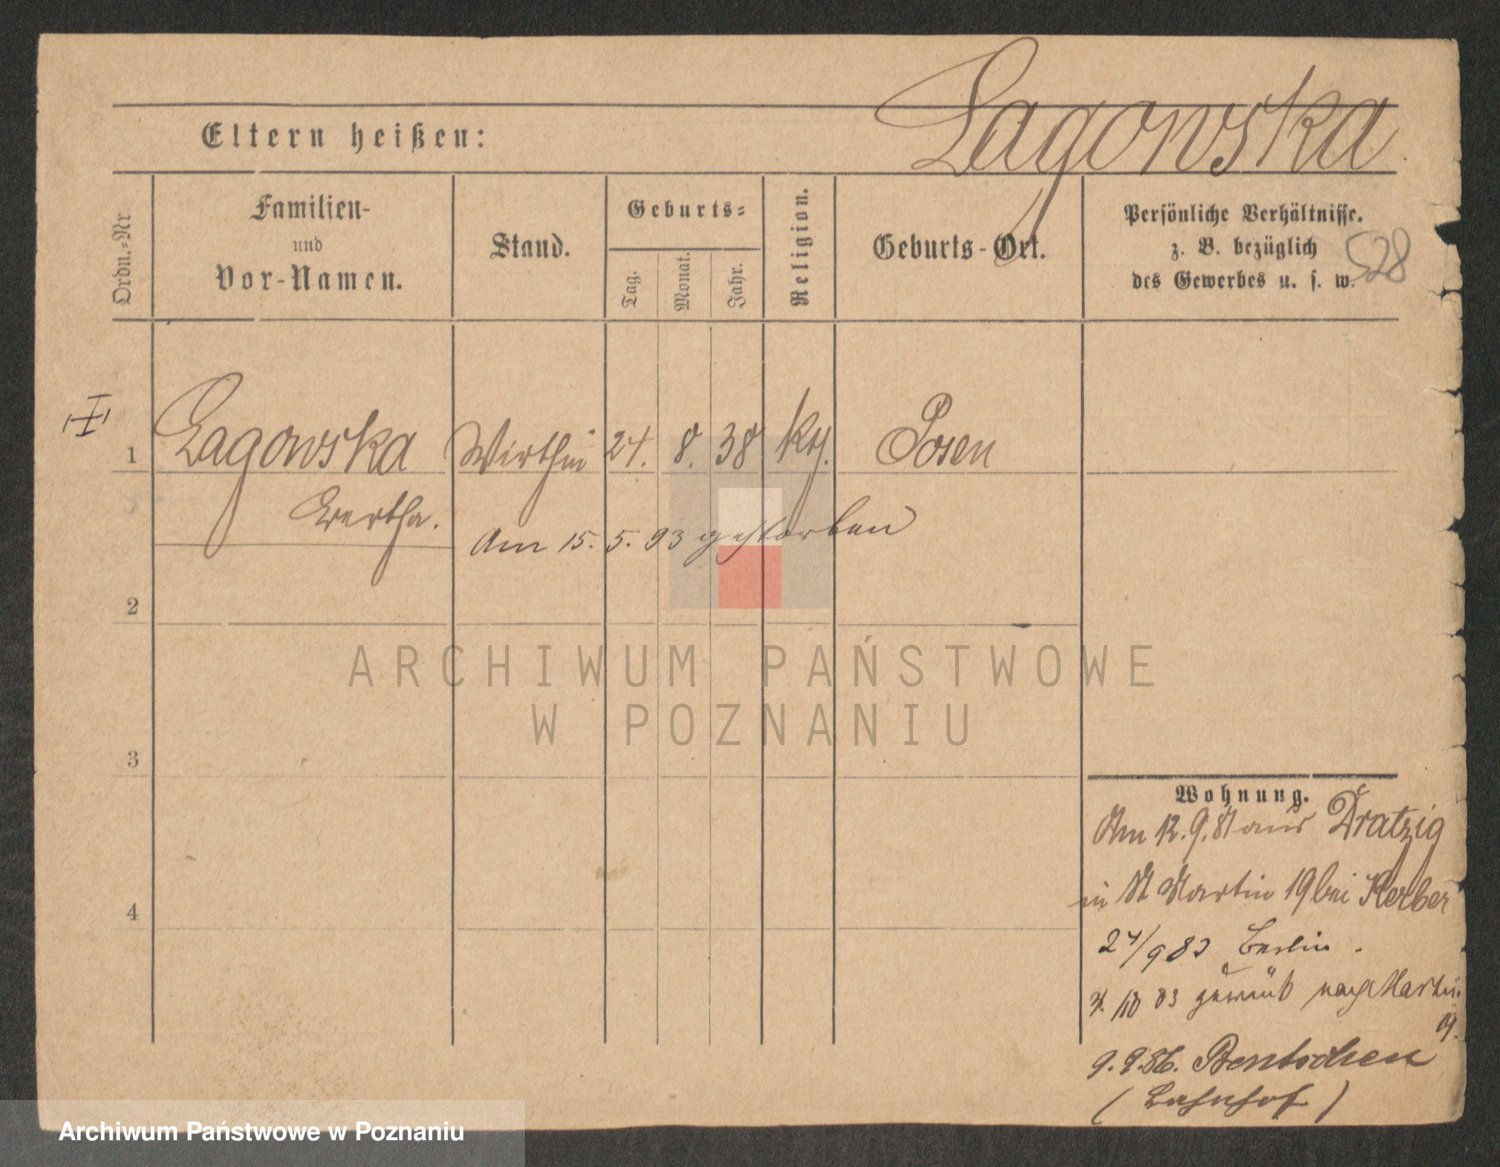 Lagowska
Eltern heißen:
Ordn.-Nr.
Familien-
und
Vor-Namen.
Stand.
Geburts-
Tag.
Monat.
Jahr.
Religion.
Geburts-Ort.
Persönliche Verhältnisse.
z. B. bezüglich
des Gewerbes u. s. w.
528
I
1 Lagowska Wirthin 24. 8. 38 kth. Posen
Bertha.
Am 15. 5. 93 gestorben
2
3
4
ARCHIWUM PAŃSTWOWE
W POZNANIU
Wohnung.
Am 12. 9. 81 aus Dratzig
in St Martin 19 bei Kerber
24/9 83 Berlin.
10 83 zurück nach Martin
19.
9. 9. 86. Bentschen
(Bahnhof)
Archiwum Państwowe w Poznaniu